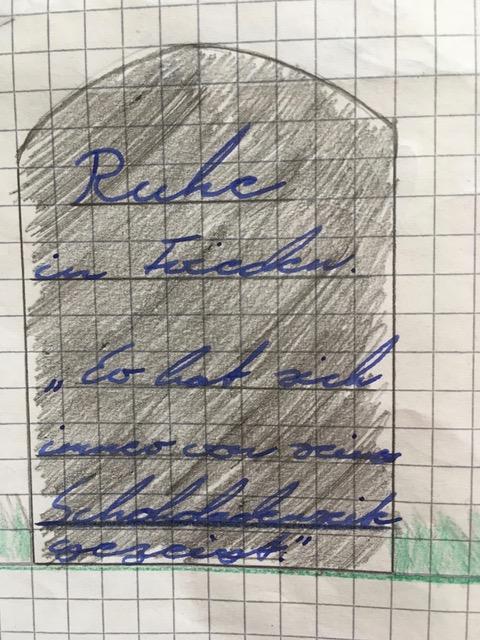 Ruhe
in Frieden.
„Er hat sich
immer von seiner
gezeigt."